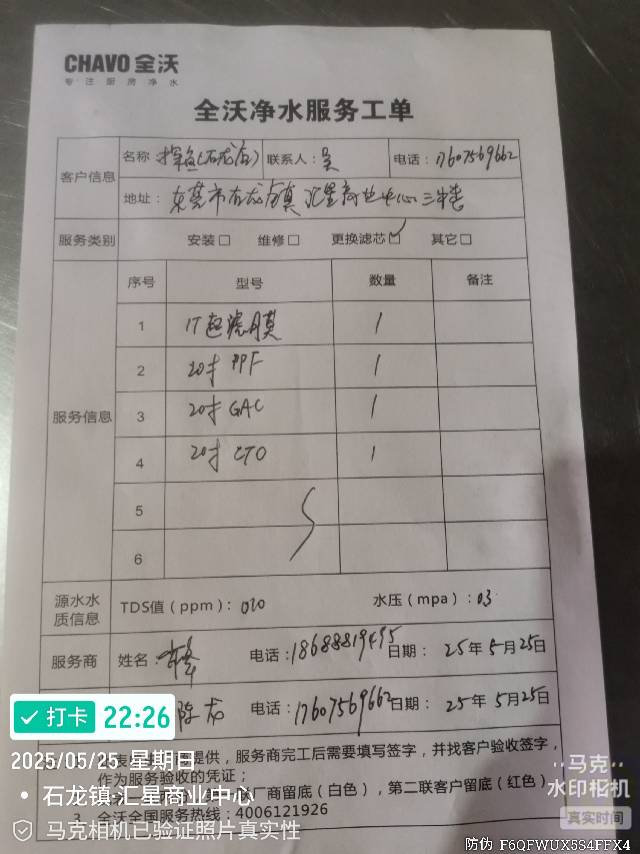 CHAVO 全沃
专注厨房净水
全沃净水服务工单
客户信息
名称 探鱼(石龙店) 联系人：吴 电话：17607569662
地址：东莞市石龙镇汇星商业中心三楼
服务类别 安装□ 维修□ 更换滤芯☑ 其它□
服务信息
序号 型号 数量 备注
1 1T超滤膜 1
2 20寸 PPF 1
3 20寸 GAC 1
4 20寸 CTO 1
5
6
源水水质信息 TDS值（ppm）：020 水压（mpa）：03
服务商 姓名： 电话：18688819495 日期：25年5月25日
陈龙 电话：17607569662 日期：25年5月25日
提供，服务商完工后需要填写签字，并找客户验收签字，
作为服务验收的凭证；
厂商留底（白色），第二联客户留底（红色）
3 全沃全国服务热线：4006121926
打卡 22:26
2025/05/25 星期日
石龙镇·汇星商业中心
马克相机已验证照片真实性
马克
水印相机
真实时间
防伪 F6QFWUX5S4FFX4